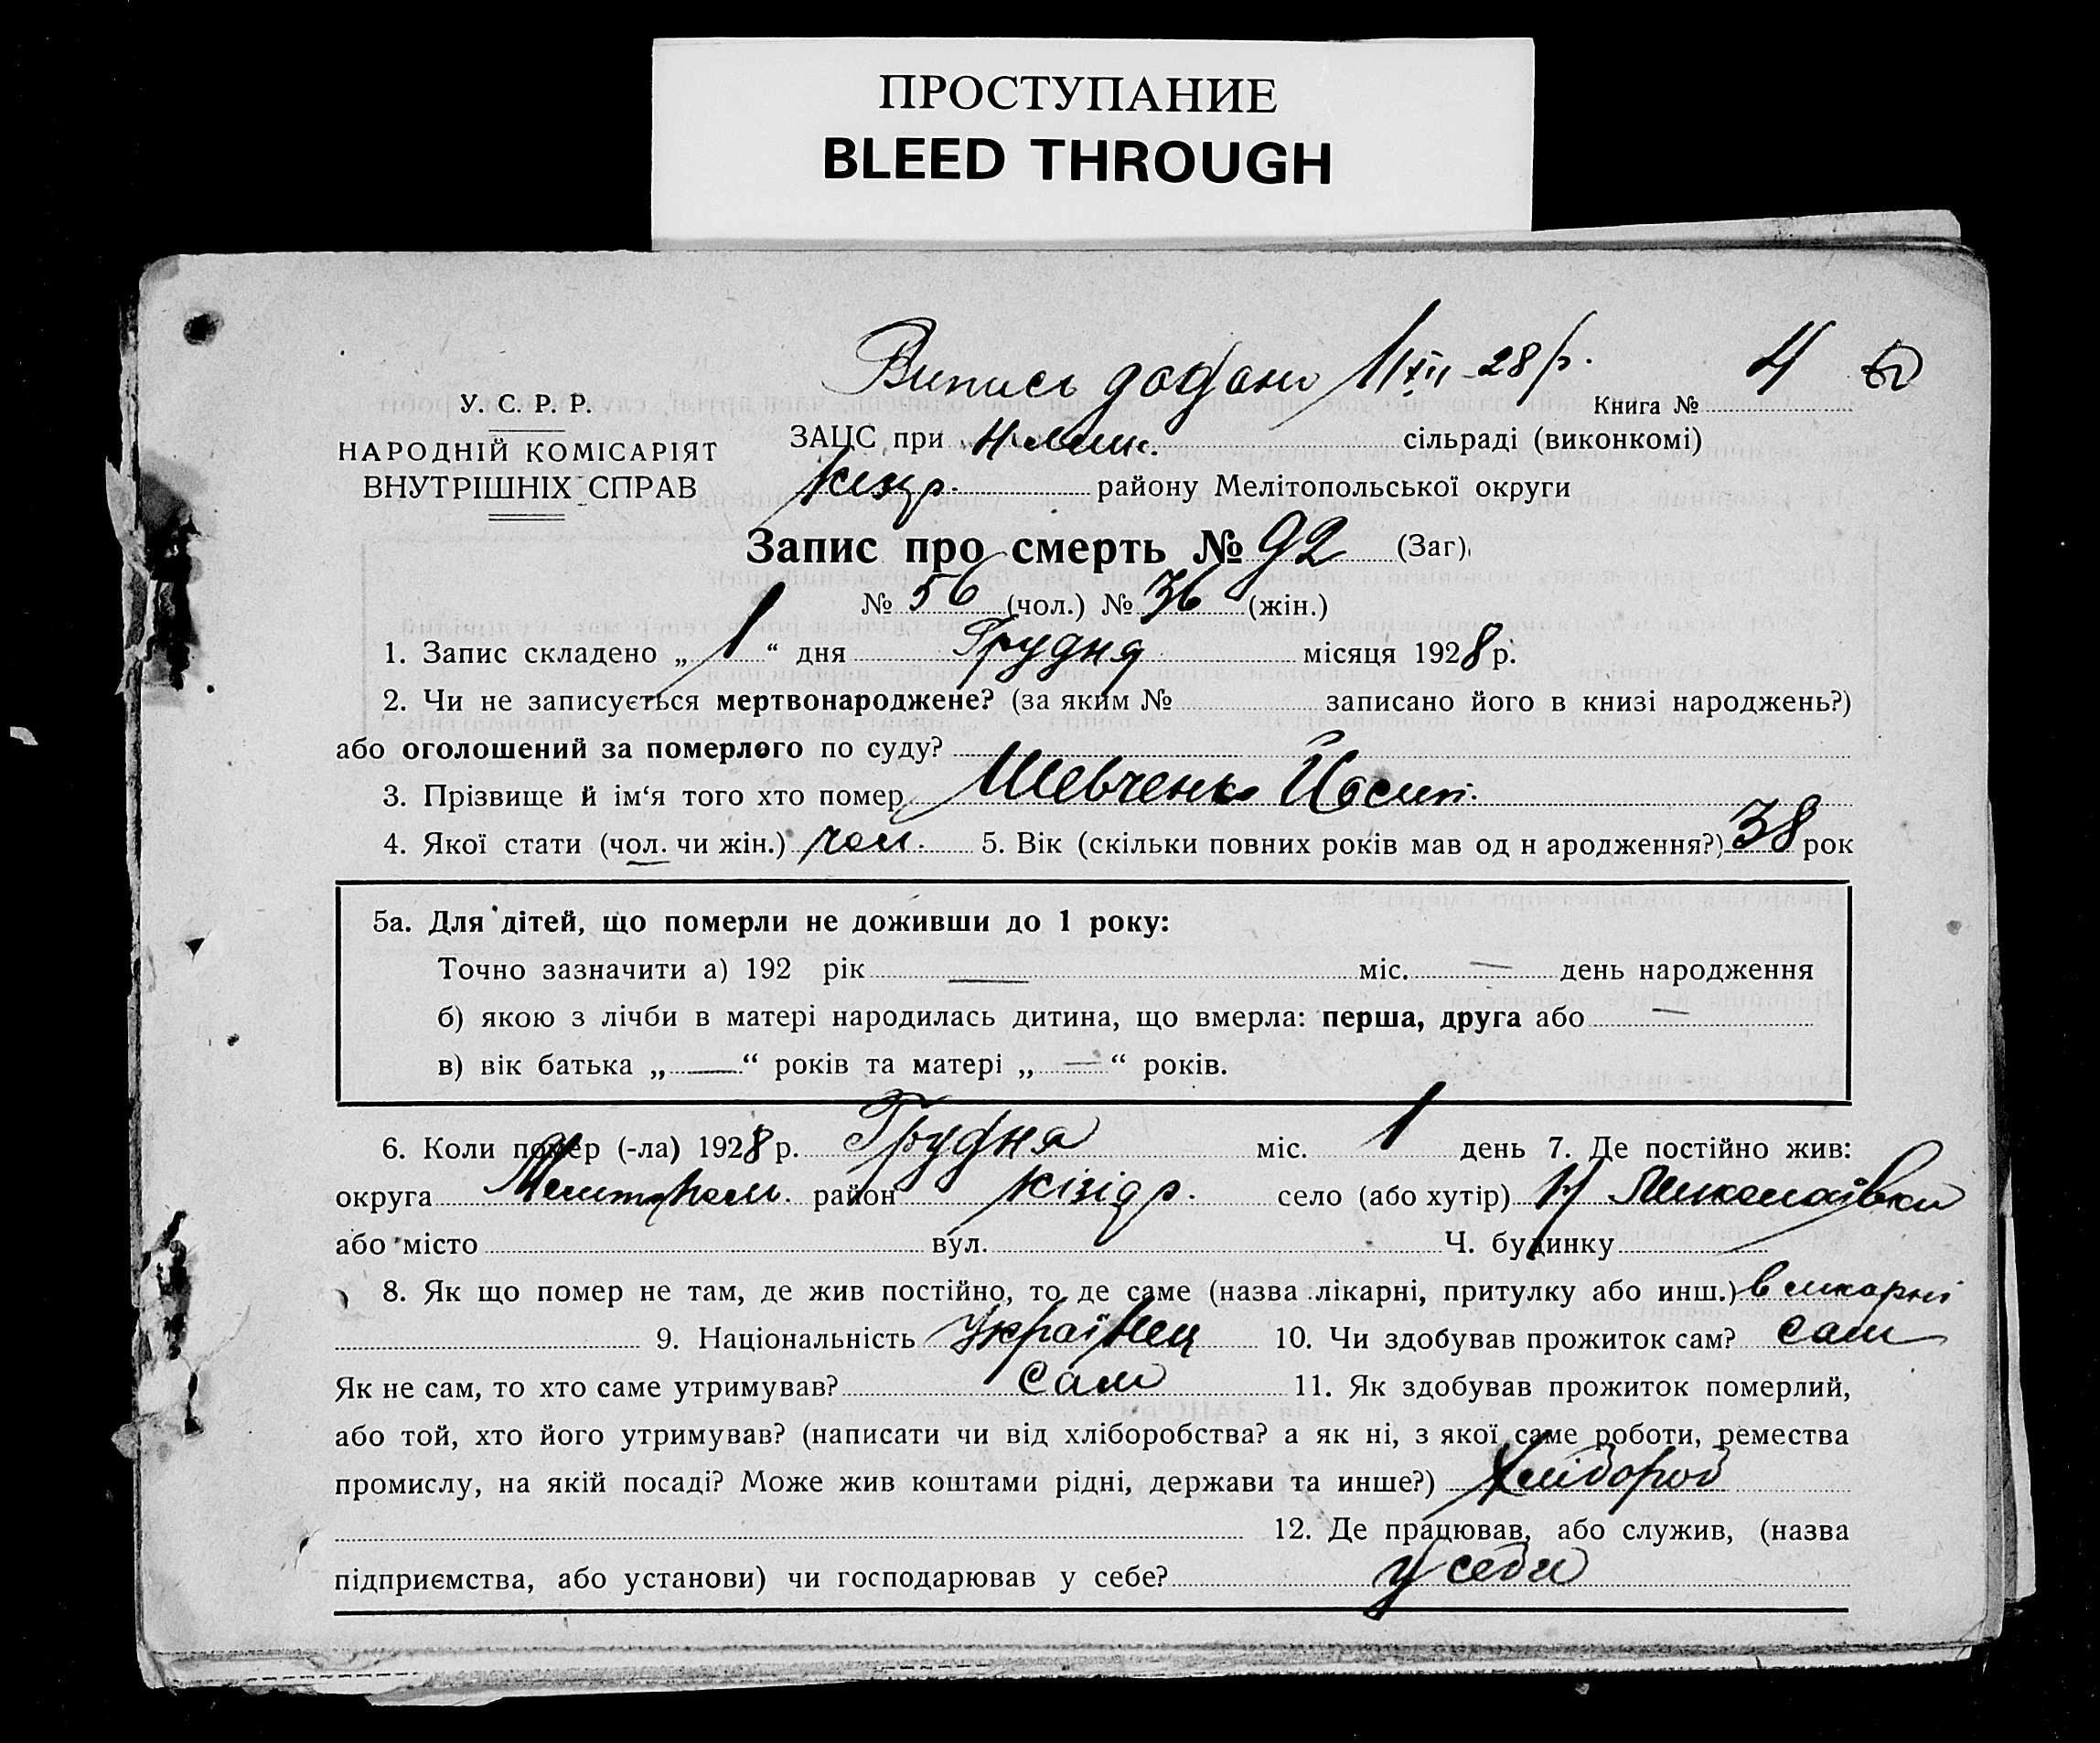 ПРОСТУПАНИЕ
BLEED THROUGH
Випись додано 1/XII-28 р. 4
У. С. Р. Р.
Книга №
НАРОДНІЙ КОМІСАРІЯТ
ВНУТРІШНІХ СПРАВ
ЗАЦС при Н сільраді (виконкомі)
району Мелітопольської округи
Запис про смерть № 92 (Заг).
№ 56 (чол.) № 36 (жін.)
1. Запис складено „ 1 “ дня Грудня місяця 1928 р.
2. Чи не записується мертвонароджене? (за яким № записано його в книзі народжень?)
або оголошений за померлого по суду?
3. Прізвище й ім‘я того хто помер Шевченко Йосип.
4. Якої стати (чол. чи жін.) чол. 5. Вік (скільки повних років мав од н ародження?) 38 рок
5а. Для дітей, що померли не доживши до 1 року:
Точно зазначити а) 192 рік — міс. — день народження
б) якою з лічби в матері народилась дитина, що вмерла: перша, друга або —
в) вік батька „ — “ років та матері „ — “ років.
6. Коли помер (-ла) 1928 р. Грудня міс. 1 день 7. Де постійно жив:
округа Мелитопол. район Кізідр. село (або хутір) Н Миколаївки
або місто вул. Ч. будинку
8. Як що помер не там, де жив постійно, то де саме (назва лікарні, притулку або инш.) в ликарні
9. Національність Українец 10. Чи здобував прожиток сам? сам
Як не сам, то хто саме утримував? сам 11. Як здобував прожиток померлий,
або той, хто його утримував? (написати чи від хліборобства? а як ні, з якої саме роботи, ремества
промислу, на якій посаді? Може жив коштами рідні, держави та инше?) Хлібороб
12. Де працював, або служив, (назва
підприємства, або установи) чи господарював у себе? у себе